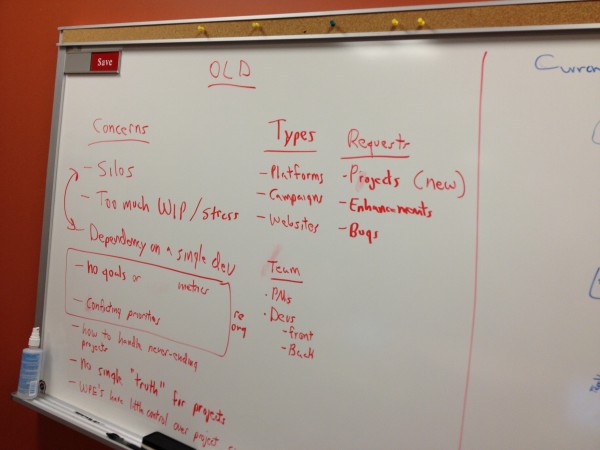 Save
OLD
Concerns
- Silos
- Too much WIP/stress
- Dependency on a single dev
- no goals or metrics
- Conflicting priorities
re
org
- how to handle never-ending
projects
- no single "truth" for projects
- have little control over project
Types
- Platforms
- Campaigns
- Websites
Requests
- Projects (new)
- Enhancements
- Bugs
Team
• PMs
• Devs
- front
- Back